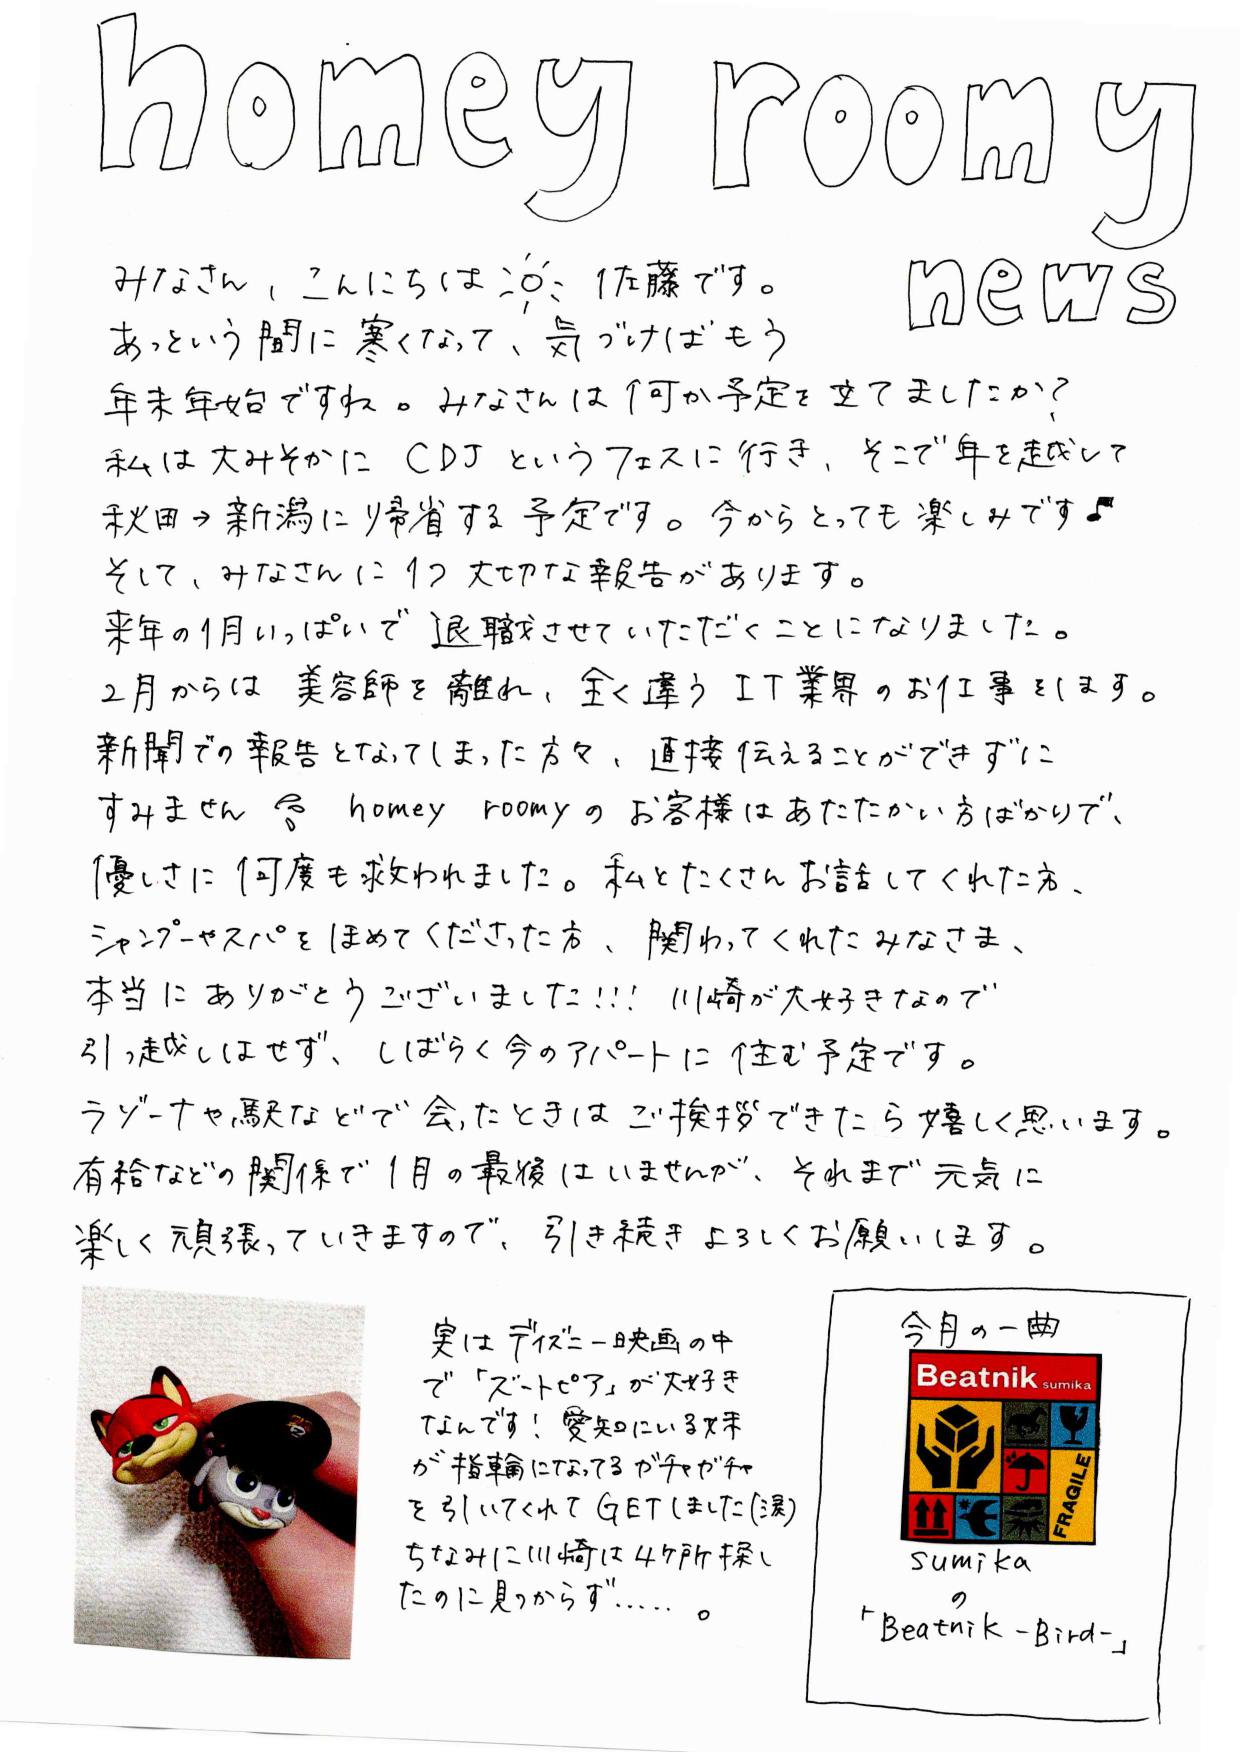 homey roomy
news
みなさん、こんにちは 佐藤です。
あっという間に寒くなって、気づけばもう
年末年始ですね。みなさんは何か予定を立てましたか?
私は大みそかに CDJ というフェスに行き、そこで年を越して
秋田→新潟に帰省する予定です。今からとっても楽しみです♪
そして、みなさんに1つ大切な報告があります。
来年の1月いっぱいで退職させていただくことになりました。
2月からは美容師を離れ、全く違うIT業界のお仕事をします。
新聞での報告となってしまった方々、直接伝えることができずに
すみません homey roomyのお客様はあたたかい方ばかりで、
優しさに何度も救われました。私とたくさんお話してくれた方、
シャンプーやスパをほめてくださった方、関わってくれたみなさま、
本当にありがとうございました!!! 川崎が大好きなので
引っ越しはせず、しばらく今のアパートに住む予定です。
ラゾーナや駅などで会ったときはご挨拶できたら嬉しく思います。
有給などの関係で1月の最後はいませんが、それまで元気に
楽しく頑張っていきますので、引き続きよろしくお願いします。
実はディズニー映画の中
で「ズートピア」が大好き
なんです!愛知にいる妹
が指輪になってるガチャガチャ
を引いてくれてGETしました(涙)
ちなみに川崎は4ケ所探し
たのに見つからず.....。
今月の一曲
Beatnik sumika
FRAGILE
sumika
の
「Beatnik -Bird-」